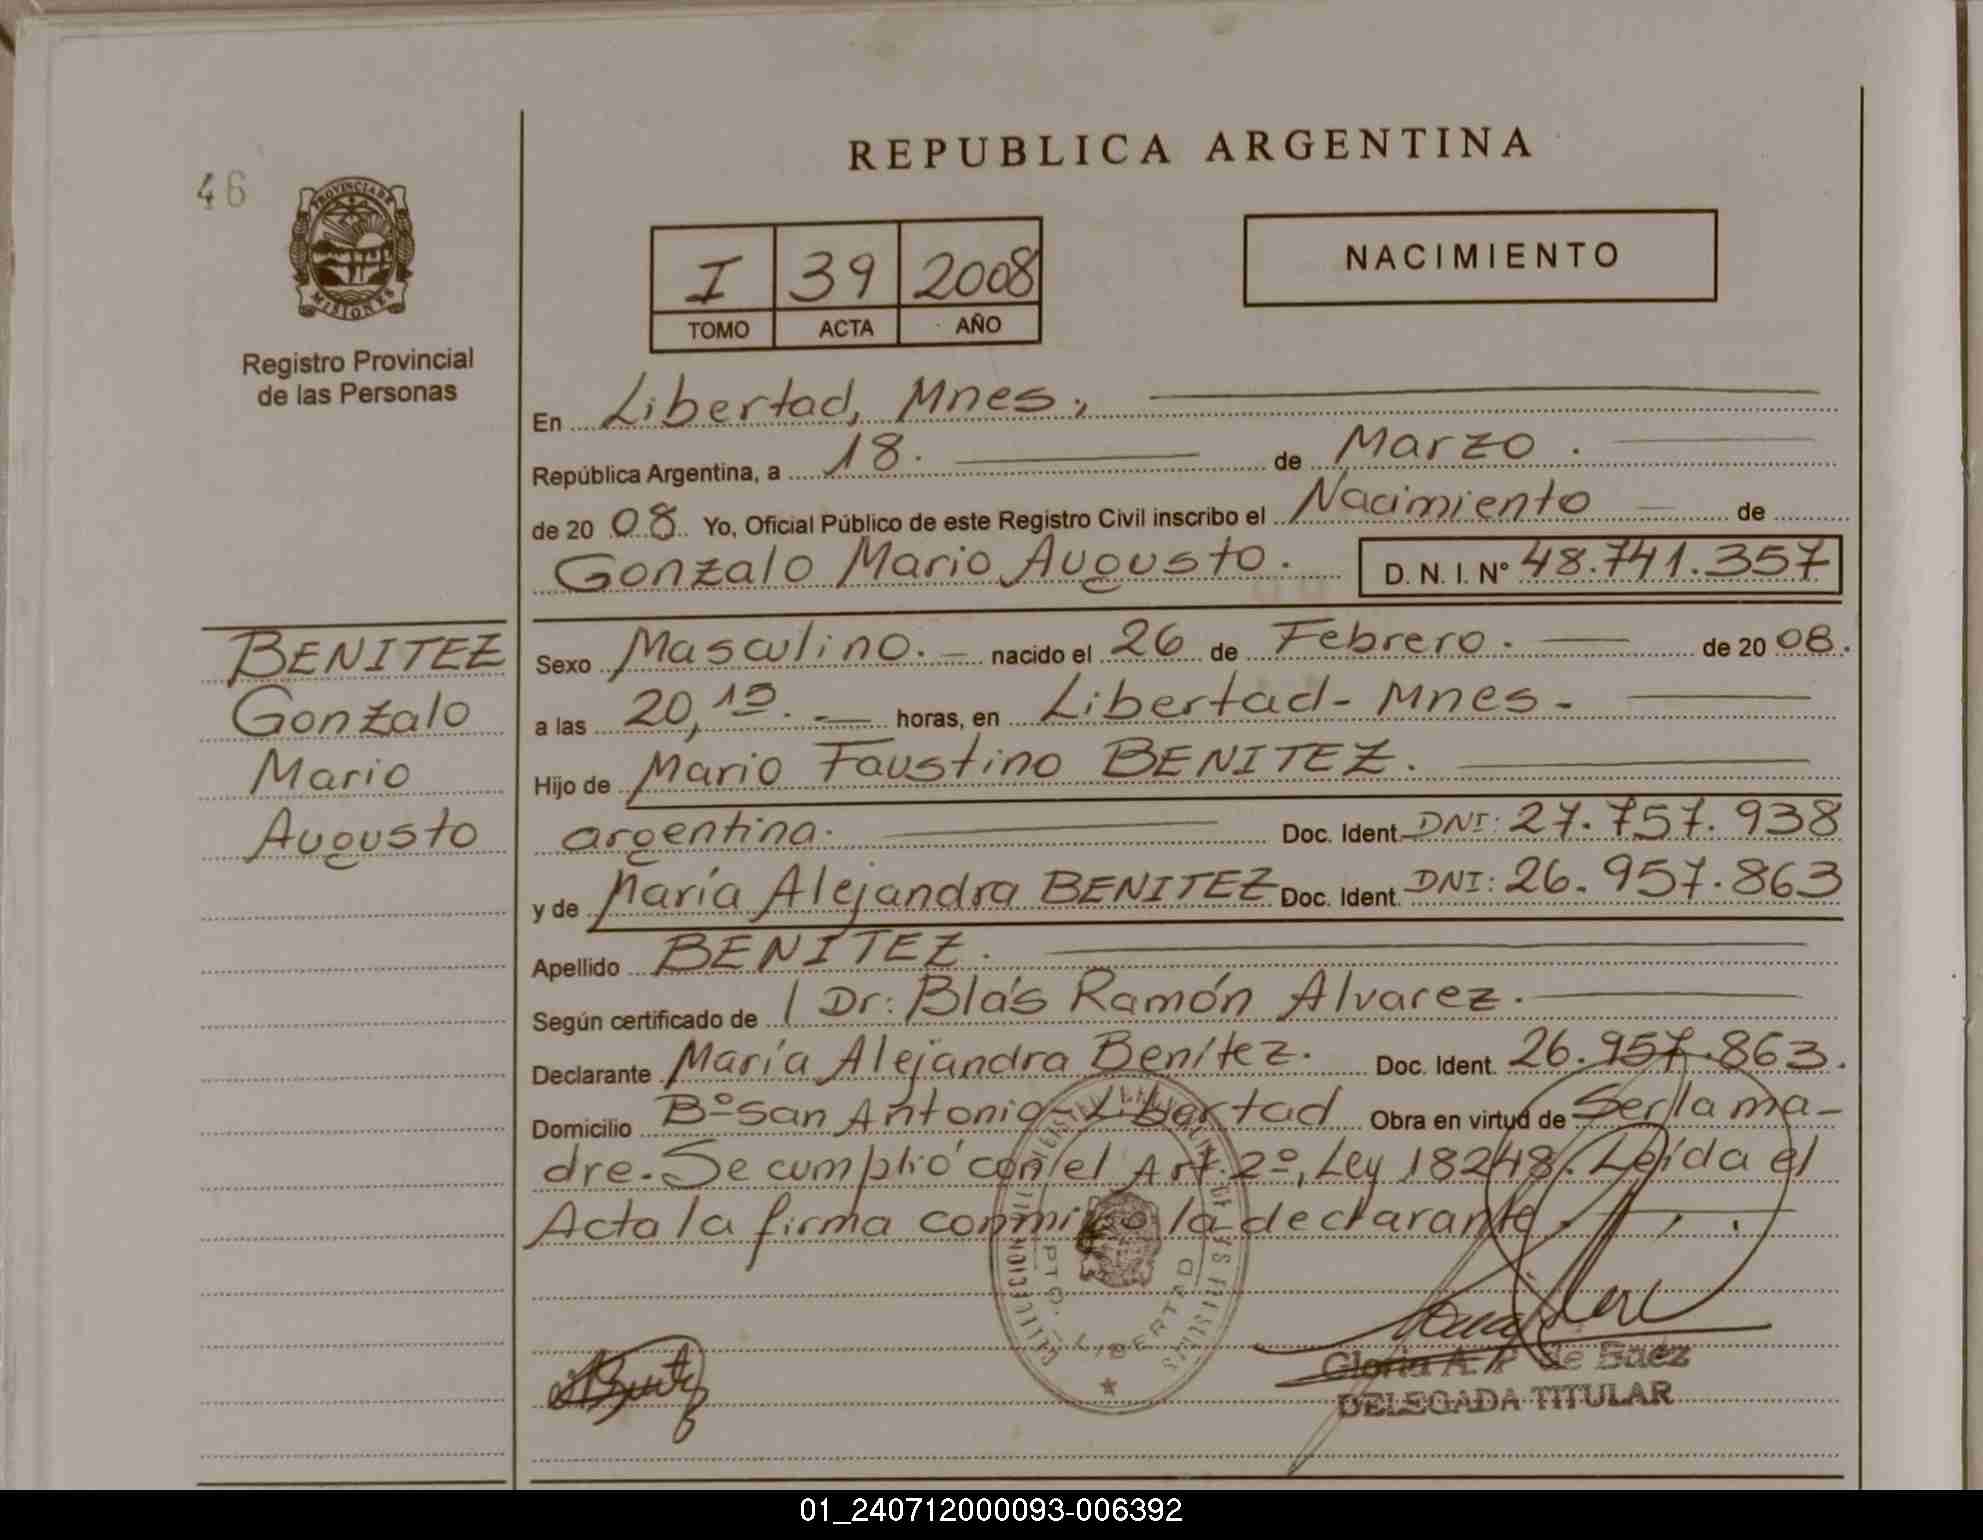 REPUBLICA ARGENTINA
46
PROVINCIA DE
MISIONES
Registro Provincial
de las Personas
I 39 2008
TOMO ACTA AÑO
NACIMIENTO
En Libertad, Mnes.,
República Argentina, a 18. de Marzo.
de 20 08. Yo, Oficial Público de este Registro Civil inscribo el Nacimiento de
Gonzalo Mario Augusto. D. N. I. N° 48.741.357
BENITEZ
Gonzalo
Mario
Augusto
Sexo Masculino. nacido el 26 de Febrero. de 20 08.
a las 20, horas, en Libertad - Mnes -
Hijo de Mario Faustino BENITEZ.
argentina. Doc. Ident. DNI: 27.757.938
y de María Alejandra BENITEZ Doc. Ident. DNI: 26.957.863
Apellido BENITEZ.
Según certificado de Dr: Blás Ramón Alvarez.
Declarante María Alejandra Benítez. Doc. Ident. 26.957.863.
Domicilio Bº San Antonio - Libertad Obra en virtud de Ser la ma-
dre. Se cumplió con el Art. 2º, Ley 18248. Leída el
Acta la firma conmigo la declarante.
DPTO. LIBERTAD
Gloria A. de Baez
DELEGADA TITULAR
01_240712000093-006392